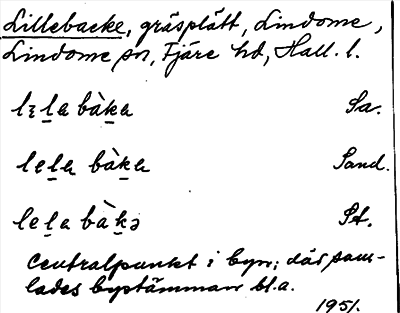 Lillebacke, gräsplätt, Lindome,
Lindome sn, Fjäre hd, Hall. l.
lɪla bàka Sa.
lela bàka Sand.
lela bàkə St.
Centralpunkt i byn; där sam-
lades bystämman bl.a.
1951.